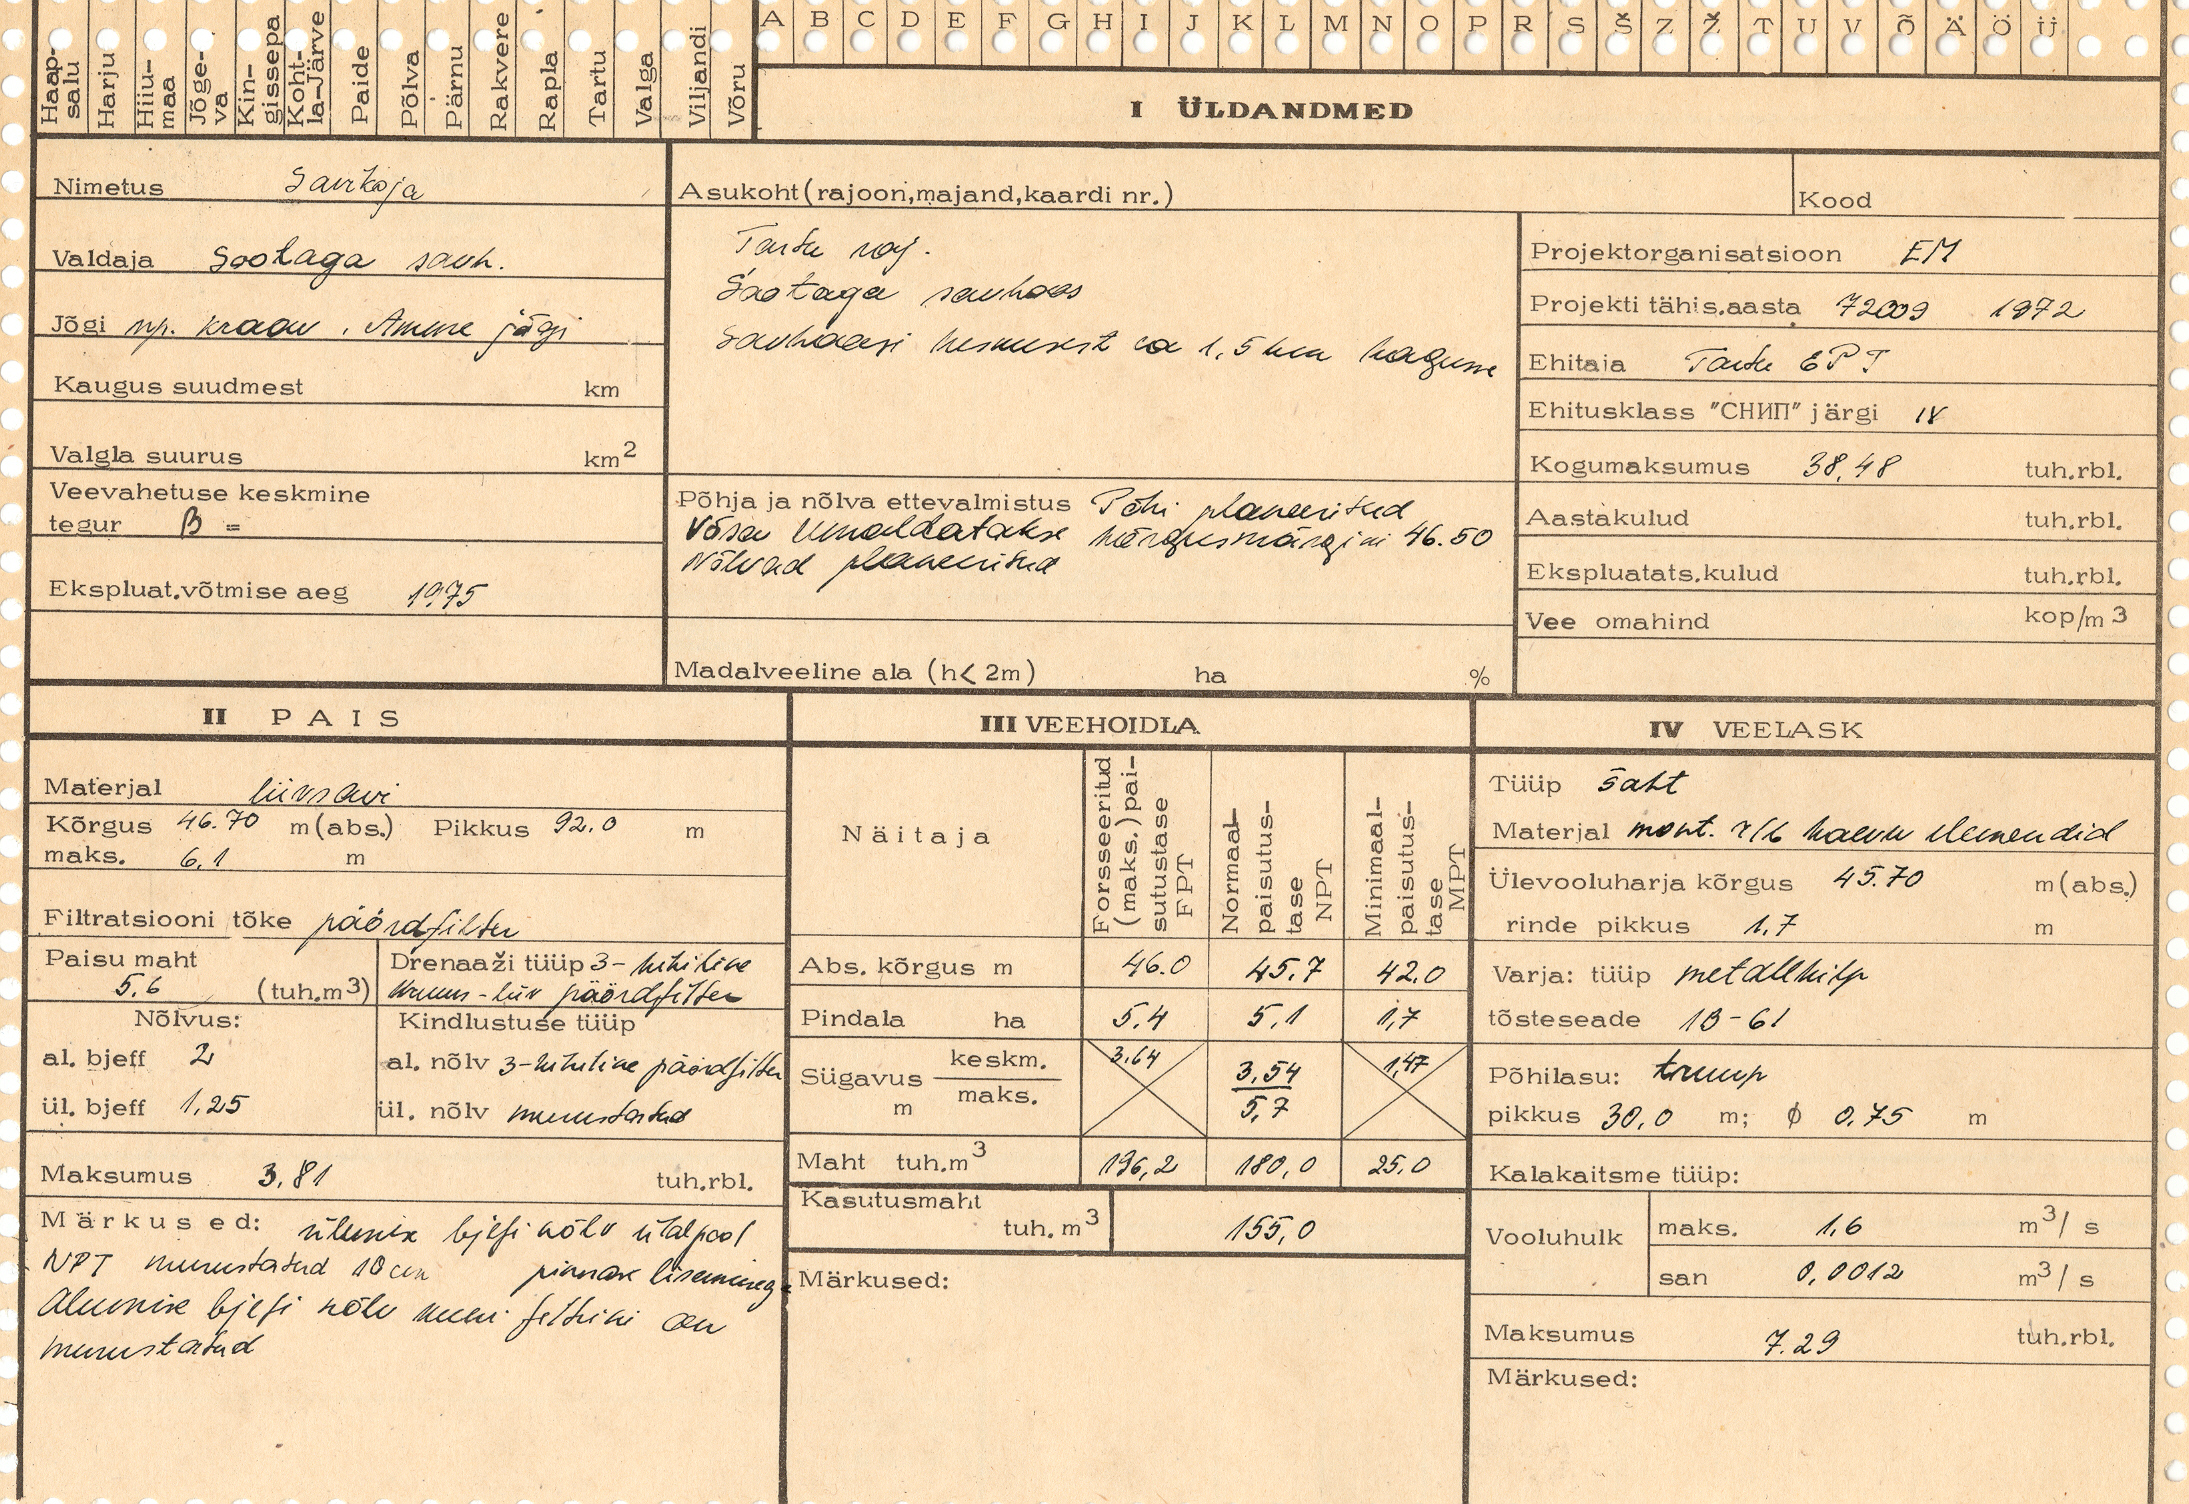 Haap-salu Harju Hiiu-maa Jõge-va Kin-gissepa Koht-la-Järve Paide Põlva Pärnu Rakvere Rapla Tartu Valga Viljandi Võru
A B C D E F G H I J K L M N O P R S Š Z Ž T U V Õ Ä Ö Ü
I ÜLDANDMED
Nimetus Savikoja
Valdaja Sootaga sovh.
Jõgi np. kraav, Amme jõgi
Kaugus suudmest km
Valgla suurus km2
Veevahetuse keskmine
tegur β =
Ekspluat.võtmise aeg 1975
Asukoht(rajoon,majand,kaardi nr.)
Tartu raj.
Sootaga sovhoos
Sovhoosi keskusest ca 1,5 km kagusse
Põhja ja nõlva ettevalmistus Põhi planeeritud
Võsa kõrgusmärgini 46.50
Nõlvad planeeritud
Madalveeline ala (h< 2m) ha %
Kood
Projektorganisatsioon EM
Projekti tähis.aasta 72009 1972
Ehitaja Tartu EPT
Ehitusklass "СНИП" järgi IV
Kogumaksumus 38,48 tuh.rbl.
Aastakulud tuh.rbl.
Ekspluatats.kulud tuh.rbl.
Vee omahind kop/m3
II PAIS
Materjal liivsavi
Kõrgus 46.70 m(abs.) Pikkus 92.0 m
maks. 6,1 m
Filtratsiooni tõke pöördfilter
Paisu maht
5,6 (tuh.m3)
Drenaaži tüüp 3-kihiline
kruus-liiv pöördfilter
Nõlvus:
al. bjeff 2
ül. bjeff 1,25
Kindlustuse tüüp
al. nõlv 3-kihiline pöördfilter
ül. nõlv murustatud
Maksumus 3,81 tuh.rbl.
Märkused: ülemise bjefi nõlv ülalpool
NPT murustatud 10 cm pinnase lisamisega
Alumise bjefi nõlv kuni filtrini on
murustatud
III VEEHOIDLA
Näitaja
Forsseeritud (maks.) pai-sutustase FPT
Normaal-paisutus-tase NPT
Minimaal-paisutus-tase MPT
Abs. kõrgus m 46.0 45.7 42.0
Pindala ha 5.4 5.1 1,7
Sügavus m keskm. 3.64 3.54 1,47
maks. 5,7
Maht tuh.m3 196,2 180,0 25.0
Kasutusmaht
tuh. m3 155,0
Märkused:
IV VEELASK
Tüüp šaht
Materjal mont. r/b kaevu elemendid
Ülevooluharja kõrgus 45.70 m(abs.)
rinde pikkus 1.7 m
Varja: tüüp metallkilp
tõsteseade 1B-61
Põhilasu: truup
pikkus 30,0 m; ϕ 0,75 m
Kalakaitsme tüüp:
Vooluhulk maks. 1,6 m3/s
san 0,0012 m3/s
Maksumus 7.29 tuh.rbl.
Märkused: